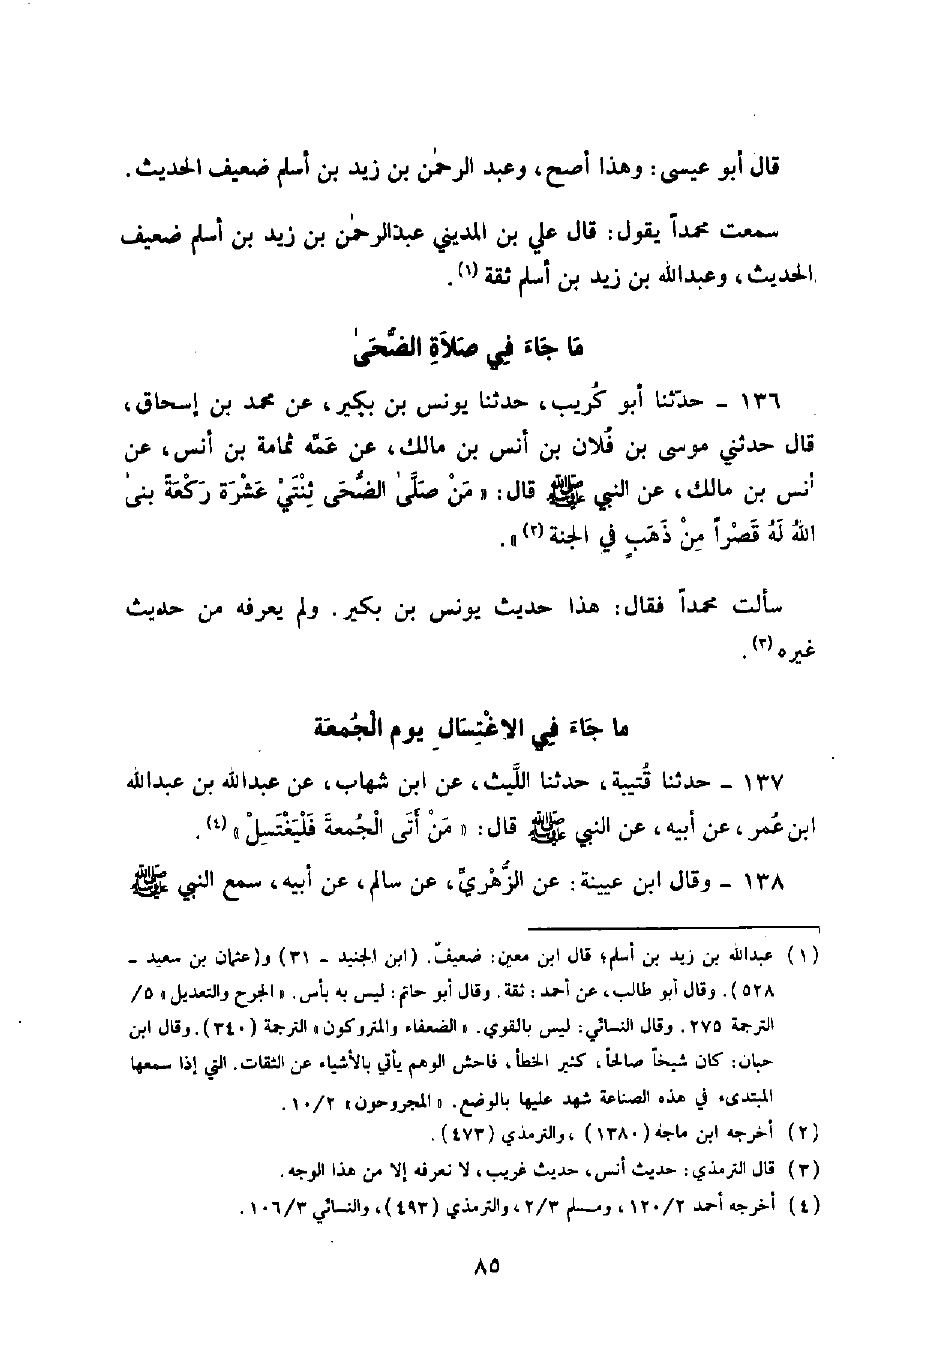 قال أبو عيسى: وهذا أصح، وعبد الرحمٰن بن زيد بن أسلم ضعيف الحديث.
سمعت محمداً يقول: قال علي بن المديني عبدالرحمٰن بن زيد بن أسلم ضعيف
الحديث، وعبدالله بن زيد بن أسلم ثقة (١).
مَا جَاءَ فِي صَلاَةِ الضُّحَىٰ
١٣٦ - حدّثنا أبو كُريب، حدثنا يونس بن بكير، عن محمد بن إسحاق،
قال حدثني موسى بن فُلان بن أنس بن مالك، عن عَمّه ثمامة بن أنس، عن
أنس بن مالك، عن النبي ﷺ قال: «مَنْ صَلَّىٰ الضُّحَى ثِنْتَيْ عَشْرَة رَكْعَةً بنىٰ
اللهُ لَهُ قَصْراً مِنْ ذَهَبٍ في الجنة (٢)».
سألت محمداً فقال: هذا حديث يونس بن بكير. ولم يعرفه من حديث
غيره (٣).
ما جَاءَ فِي الاغْتِسَالِ يوم الْجُمعَة
١٣٧ - حدثنا قُتيبة، حدثنا اللَّيث، عن ابن شهاب، عن عبدالله بن عبدالله
ابن عُمر، عن أبيه، عن النبي ﷺ قال: «مَنْ أَتَى الْجُمعةَ فَلْيَغْتَسِلْ» (٤).
١٣٨ - وقال ابن عيينة: عن الزُّهْريِّ، عن سالم، عن أبيه، سمع النبي ﷺ
(١) عبدالله بن زيد بن أسلم؛ قال ابن معين: ضعيفٌ. (ابن الجنيد - ٣١) و(عثمان بن سعيد -
٥٢٨). وقال أبو طالب، عن أحمد: ثقة. وقال أبو حاتم: ليس به بأس. «الجرح والتعديل» ٥/
الترجمة ٢٧٥. وقال النسائي: ليس بالقوي. «الضعفاء والمتروكون» الترجمة (٣٤٠). وقال ابن
حبان: كان شيخاً صالحاً، كثير الخطأ، فاحش الوهم يأتي بالأشياء عن الثقات. التي إذا سمعها
المبتدىء في هذه الصناعة شهد عليها بالوضع. «المجروحون» ١٠/٢.
(٢) أخرجه ابن ماجة (١٣٨٠)، والترمذي (٤٧٣).
(٣) قال الترمذي: حديث أنس، حديث غريب، لا نعرفه إلا من هذا الوجه.
(٤) أخرجه أحمد ١٢٠/٢، ومسلم ٢/٣، والترمذي (٤٩٣)، والنسائي ١٠٦/٣.
٨٥